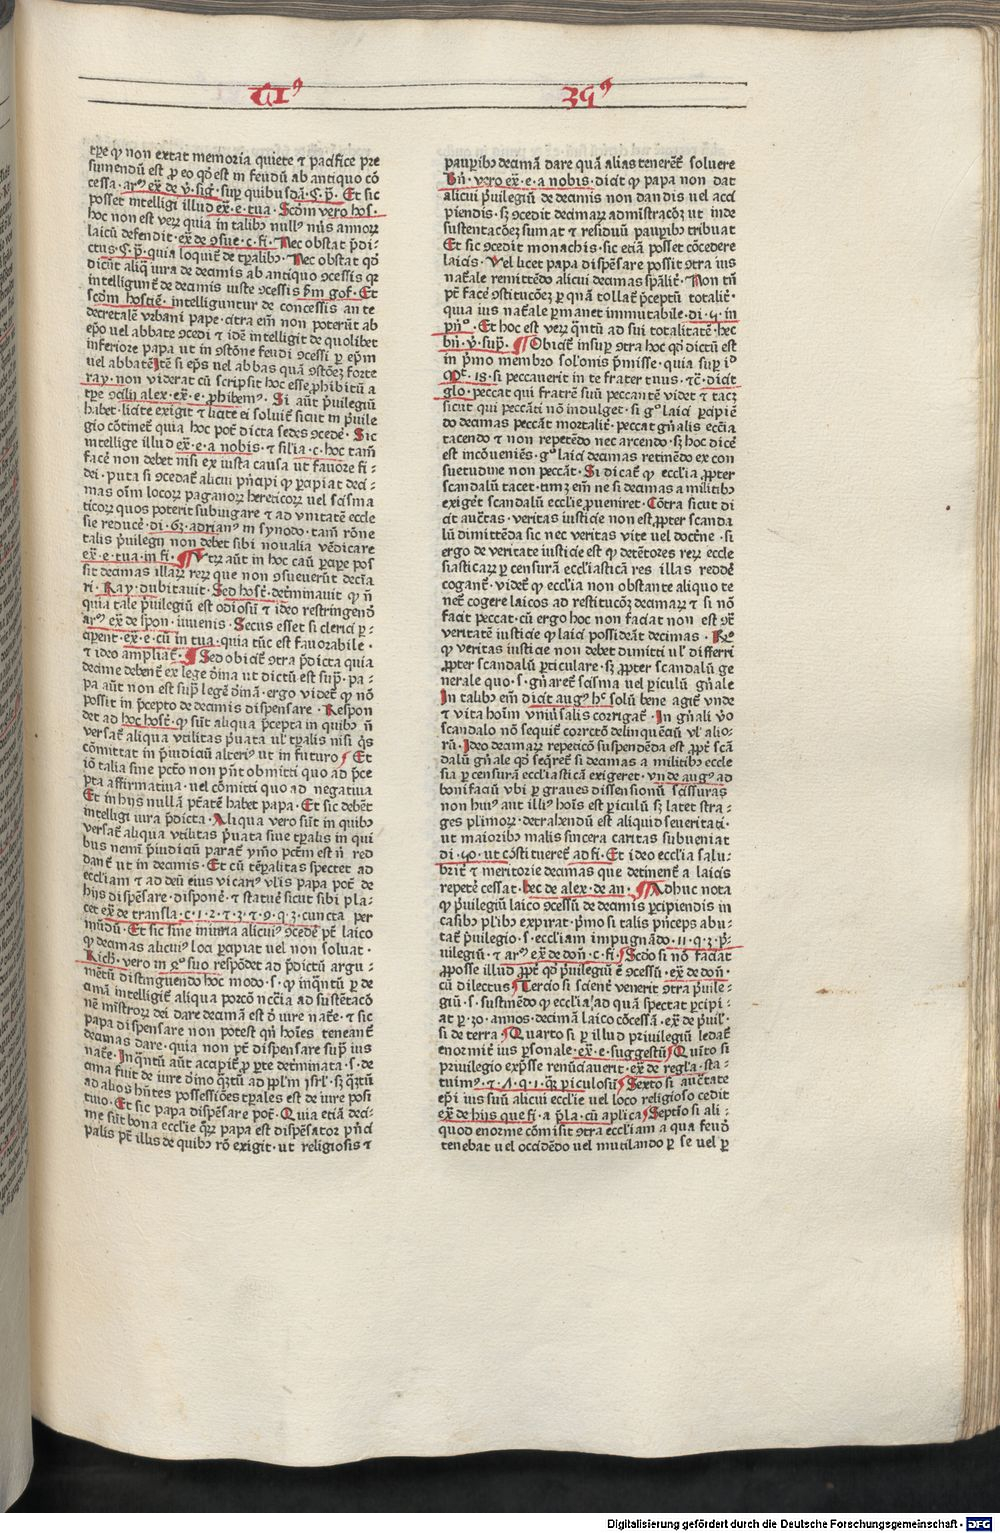 Tiꝰ 39ꝰ
tꝑe ꝙ non extat memoria quiete ⁊ pacifice pre
sumendū est ꝑ eo qđ est in feudū ab antiquo cō
posset intelligi illud ex̄·e·tua· Scd̄m vero hos·
hoc non est verꝝ quia in talibꝫ nullꝰ
laicū defendit·ex̄·de ꝯsue·c·fi· Nec obstat p̄di-
ctus·C·p̄·quia loquit̄ de tꝑalibꝫ· Nec obstat qđ
dicūt aliq̄ iura de decimis ab antiquo ꝯcessis
intelligunt̄ de decimis iuste ꝯcessis Et
scd̄m hostiē· intelliguntur de concessis an te
decretalē vrbani pape·citra em̄ non poterūt ab
ep̄o uel abbate ꝯcedi ⁊ idē intelligit de quolibet
inferiore papa ut in feudi ꝯcessi ꝑ ep̄m
uel abbatē Itē si ep̄s vel abbas quā forte
ray·non viderat cū scripsit hoc esse ꝓhibitū a
alex·ex̄·e·ꝓhibemꝰ· Si aūt p̄uilegiū
habet·licite exigit ⁊ licite ei soluit̄ sicut in p̄uile
gio cōtinet̄ quia hoc pōt dicta sedes ꝯcedē· Sic
intellige illud ex̄·e·a nobis·⁊ filia·c·hoc tam̄
facē non debet nisi ex iusta causa ut fauore fi-
dei·puta si ꝯcedat̄ alicui p̄ncipi ꝙ ꝑcipiat deci-
mas om̄ locoꝝ paganoꝝ hereticoꝝ uel scisma
ticoꝝ quos poterit subiugare ⁊ ad vnitatē eccle
sie reducē·di·63·adrianꝰ in synodo·tam̄ rōne
talis p̄uilegij non debet sibi noualia vēdicare
ex̄·e·tua·in fi· ¶ Vtꝝ aūt in hoc casu ꝑcipe pos
sit decimas illaꝝ reꝝ que non ꝯsueuerūt decīa
ri· Ray·dubitauit· Sed host̄·det̄minauit ꝙ n̄
quia tale p̄uilegiū est odiosū ⁊ ideo restringendū
arꝰ ex̄·de spon·iuuenis· Secus esset si clerici ꝑ-
ciperent·ex̄·e·cū in tua·quia tūc est fauorabile·
⁊ ideo ampliat̄· ¶ Sed obicit̄ ꝯtra p̄dicta quia
decime debent̄ ex lege d̄ina ut dictū est sup̄· pa-
pa aūt non est sup̄ legē d̄inā·ergo videt̄ ꝙ nō
possit in p̄cepto de decimis dispensare· Respon
det ad hoc host̄·ꝙ sūt aliqua p̄cepta in quibꝫ n̄
versat̄ aliqua vtilitas p̄uata ul̓ tꝑalis nisi
cōmittat in p̄iudiciū alteriꝰ ut in futuro/ Et
iō talia sine pctō non pn̄t obmitti quo ad p̄ce
pta affirmatiua·uel cōmitti quo ad negatiua
Et in hijs nullā ptāte habet papa· Et sic debēt
intelligi iura p̄dicta· Aliqua vero sūt in quibꝫ
versat̄ aliqua vtilitas p̄uata siue tꝑalis in qui
bus nemi p̄iudiciū parat̄ ymo pctm̄ est n̄ red
dant̄ ut in decimis· Et cū tēꝑalitas spectet ad
eccl̄iam ⁊ ad deū eius vicariꝰ vl̓is papa pōt de
hijs dispēsare·disponē·⁊ statuē sicut sibi pla-
cet ex̄·de transla·c·1·2·⁊·3·⁊·9·q·3·cuncta per
mūdū· Et sic sine iniuria alicuiꝰ ꝯcedē pt̄ laico
ꝙ decimas alicuiꝰ loci ꝑcipiat vel non soluat·
Rich·vero in suo respōdet ad p̄dictū argu-
mētū distinguendo hoc modo·s·ꝙ inq̄ntū ꝑ de
cimā intelligit̄ aliqua porcō nccīa ad sustētacō
nē mīstroꝝ dei dare decimā est d̄ iure nat̄e·⁊ sic
papa dispensare non potest qn̄ hoīes teneant̄
decimas dare·quia non pt̄ dispensare sup̄ ius
nat̄e· Inq̄ntū aūt accipit̄ ꝑ ꝑte det̄minata·s·de
cima fuit de iure dīno q̄ztū ad pp̄lm̄ isrl̄·sꝫ q̄ztū
ad alios hn̄tes possessiōes tꝑales est de iure posi
tiuo· Et sic papa dispēsare pōt· Quia etiā deci-
me sūt bona eccl̄ie qꝝ papa est dispēsator pn̄ci
palis pt̄ illis de quibꝫ rō exigit·ut religiosis ⁊
pauꝑibꝫ decimā dare quā alias tenerēt̄ soluere
Bn̄·vero ex̄·e·a nobis·dicit ꝙ papa non dat
alicui p̄uilegiū de decimis non dandis vel acci
piendis·sꝫ ꝯcedit decimaꝝ admīstracōꝫ ut inde
sustentacōeꝫ sumat ⁊ residuū pauꝑibꝫ tribuat
Et sic ꝯcedit monachis·sic etiā posset cōcedere
laicis· Vel licet papa dispēsare possit ꝯtra ius
nat̄ale remittēdo alicui decimas sp̄alit̄· Non tn̄
pt̄ facē ꝯstitucōeꝫ ꝑ quā tollat̄ p̄ceptū totalit̄·
quia ius nat̄ale ꝑmanet immutabile·di·5·in
pn̄º· Et hoc est verꝝ q̄ntū ad sui totalitatē·hec
bn̄·v̓·sup̄· ¶ Obicit̄ insuꝑ ꝯtra hoc qđ dictū est
in p̄mo membro sol̄onis p̄misse·quia suꝑ id
Mt̄·18·si peccauerit in te frater tuus·⁊c̄·dicit
glo·peccat qui fratrē suū peccantē videt ⁊ tacꝫ
sicut qui peccāti nō indulget·si gº laici ꝑcipiē
do decimas peccāt mortalit̄·peccat gn̄alis eccīa
tacendo ⁊ non repetēdo nec arcendo·sꝫ hoc dicē
est incōueniēs·gº laici decimas retinēdo ex con
suetudine non peccāt· Si dicat̄ ꝙ eccl̄ia ꝓpter
scandalū tacet·timꝫ em̄ ne si decimas a militibꝫ
exiget̄ scandalū eccl̄ie ꝓueniret· Cōtra sicut di
cit auct̄as·veritas iusticie non est ꝓpter scanda
lū dimittēda sic nec veritas vite vel doct̄ne·si
ergo de veritate iusticie est ꝙ detētores reꝝ eccle
siasticaꝝ ꝑ censurā eccl̄iasticā res illas reddē
cogant̄·videt̄ ꝙ eccl̄ia non obstante aliquo te
net̄ cogere laicos ad restitucōꝫ decimaꝝ ⁊ si nō
facit peccat·cū ergo hoc non faciat non est ꝯt̄
veritatē iusticie ꝙ laici possideāt decimas· Rº
ꝙ veritas iusticie non debet dimitti ul̓ differri
ꝓpter scandalū ꝑticulare·sꝫ ꝓpter scandalū ge
nerale quo·s·gn̄aret̄ scisma vel ꝑiculū gn̄ale
In talibꝫ em̄ dicit augꝰ hꝰ solū bene agit̄ vnde
⁊ vita hoīm vniu̓salis corrigat̄· In gn̄ali v̓o
scandalo nō sequit̄ correctō delinquēciū vl̓ alio-
rū· Ideo decimaꝝ repeticō suspendēda est ꝓpt̄ scā
dalū gn̄ale qđ seq̄ret̄ si decimas a militibꝫ eccle
sia ꝑ censurā eccl̄iasticā exigeret·vnde augꝰ ad
bonifaciū vbi ꝑ graues dissensionū scissuras
non huiꝰ aut illiꝰ hoīs est ꝑiculū sꝫ latet stra-
ges pl̄imoꝝ·detrahendū est aliquid seueritati·
ut maioribꝫ malis sincera caritas subueniat
di·50·ut cōstitueret̄ ad fi· Et ideo eccl̄ia salu-
brit̄ ⁊ meritorie decimas que detinent̄ a laicis
repetē cessat·hec de alex·de an· ¶ Adhuc nota
ꝙ p̄uilegiū laico ꝯcessū de decimis ꝑcipiendis in
casibꝫ pl̓ibꝫ expirat·p̄mo si talis p̄nceps abu-
tat̄ p̄uilegio·s·eccl̄iam impugnādo·11·q·3·p̄-
uilegiū·⁊ arꝰ ex̄·de don̄·c·fi· Scd̄o si nō faciat
ꝓposse illud ꝓpt̄ qđ p̄uilegiū ē ꝯcessū·ex̄·de don̄·
cū dilectus/ Tercio si scient̄ venerit ꝯtra p̄uile-
giū·s·sustinēdo ꝙ eccl̄ia ad quā spectat ꝑcipi-
at ꝑ·30·annos·decimā laico cōcessā·ex̄·de p̄uil̓·
si de terra·/ Quarto si ꝑ illud priuilegiū ledat̄
enormit̄ ius ꝑsonale·ex̄·e·suggestū/ Quīto si
priuilegio exp̄sse renūciauerit·ex̄·de regl̓a·sta-
tuimꝰ·⁊·1·q·1·q̄ꝝ piculosū/ Sexto si auct̄ate
ep̄i ius suū alicui eccl̄ie vel loco religioso cedit
ex̄·de hijs que fi·a p̄la·cū aplica/ Septīo si ali-
quod enorme cōmisit ꝯtra eccl̄iam a qua feudū
tenebat uel occidēdo uel mutilando ꝑ se uel ꝑ
Digitalisierung gefördert durch die Deutsche Forschungsgemeinschaft - DFG